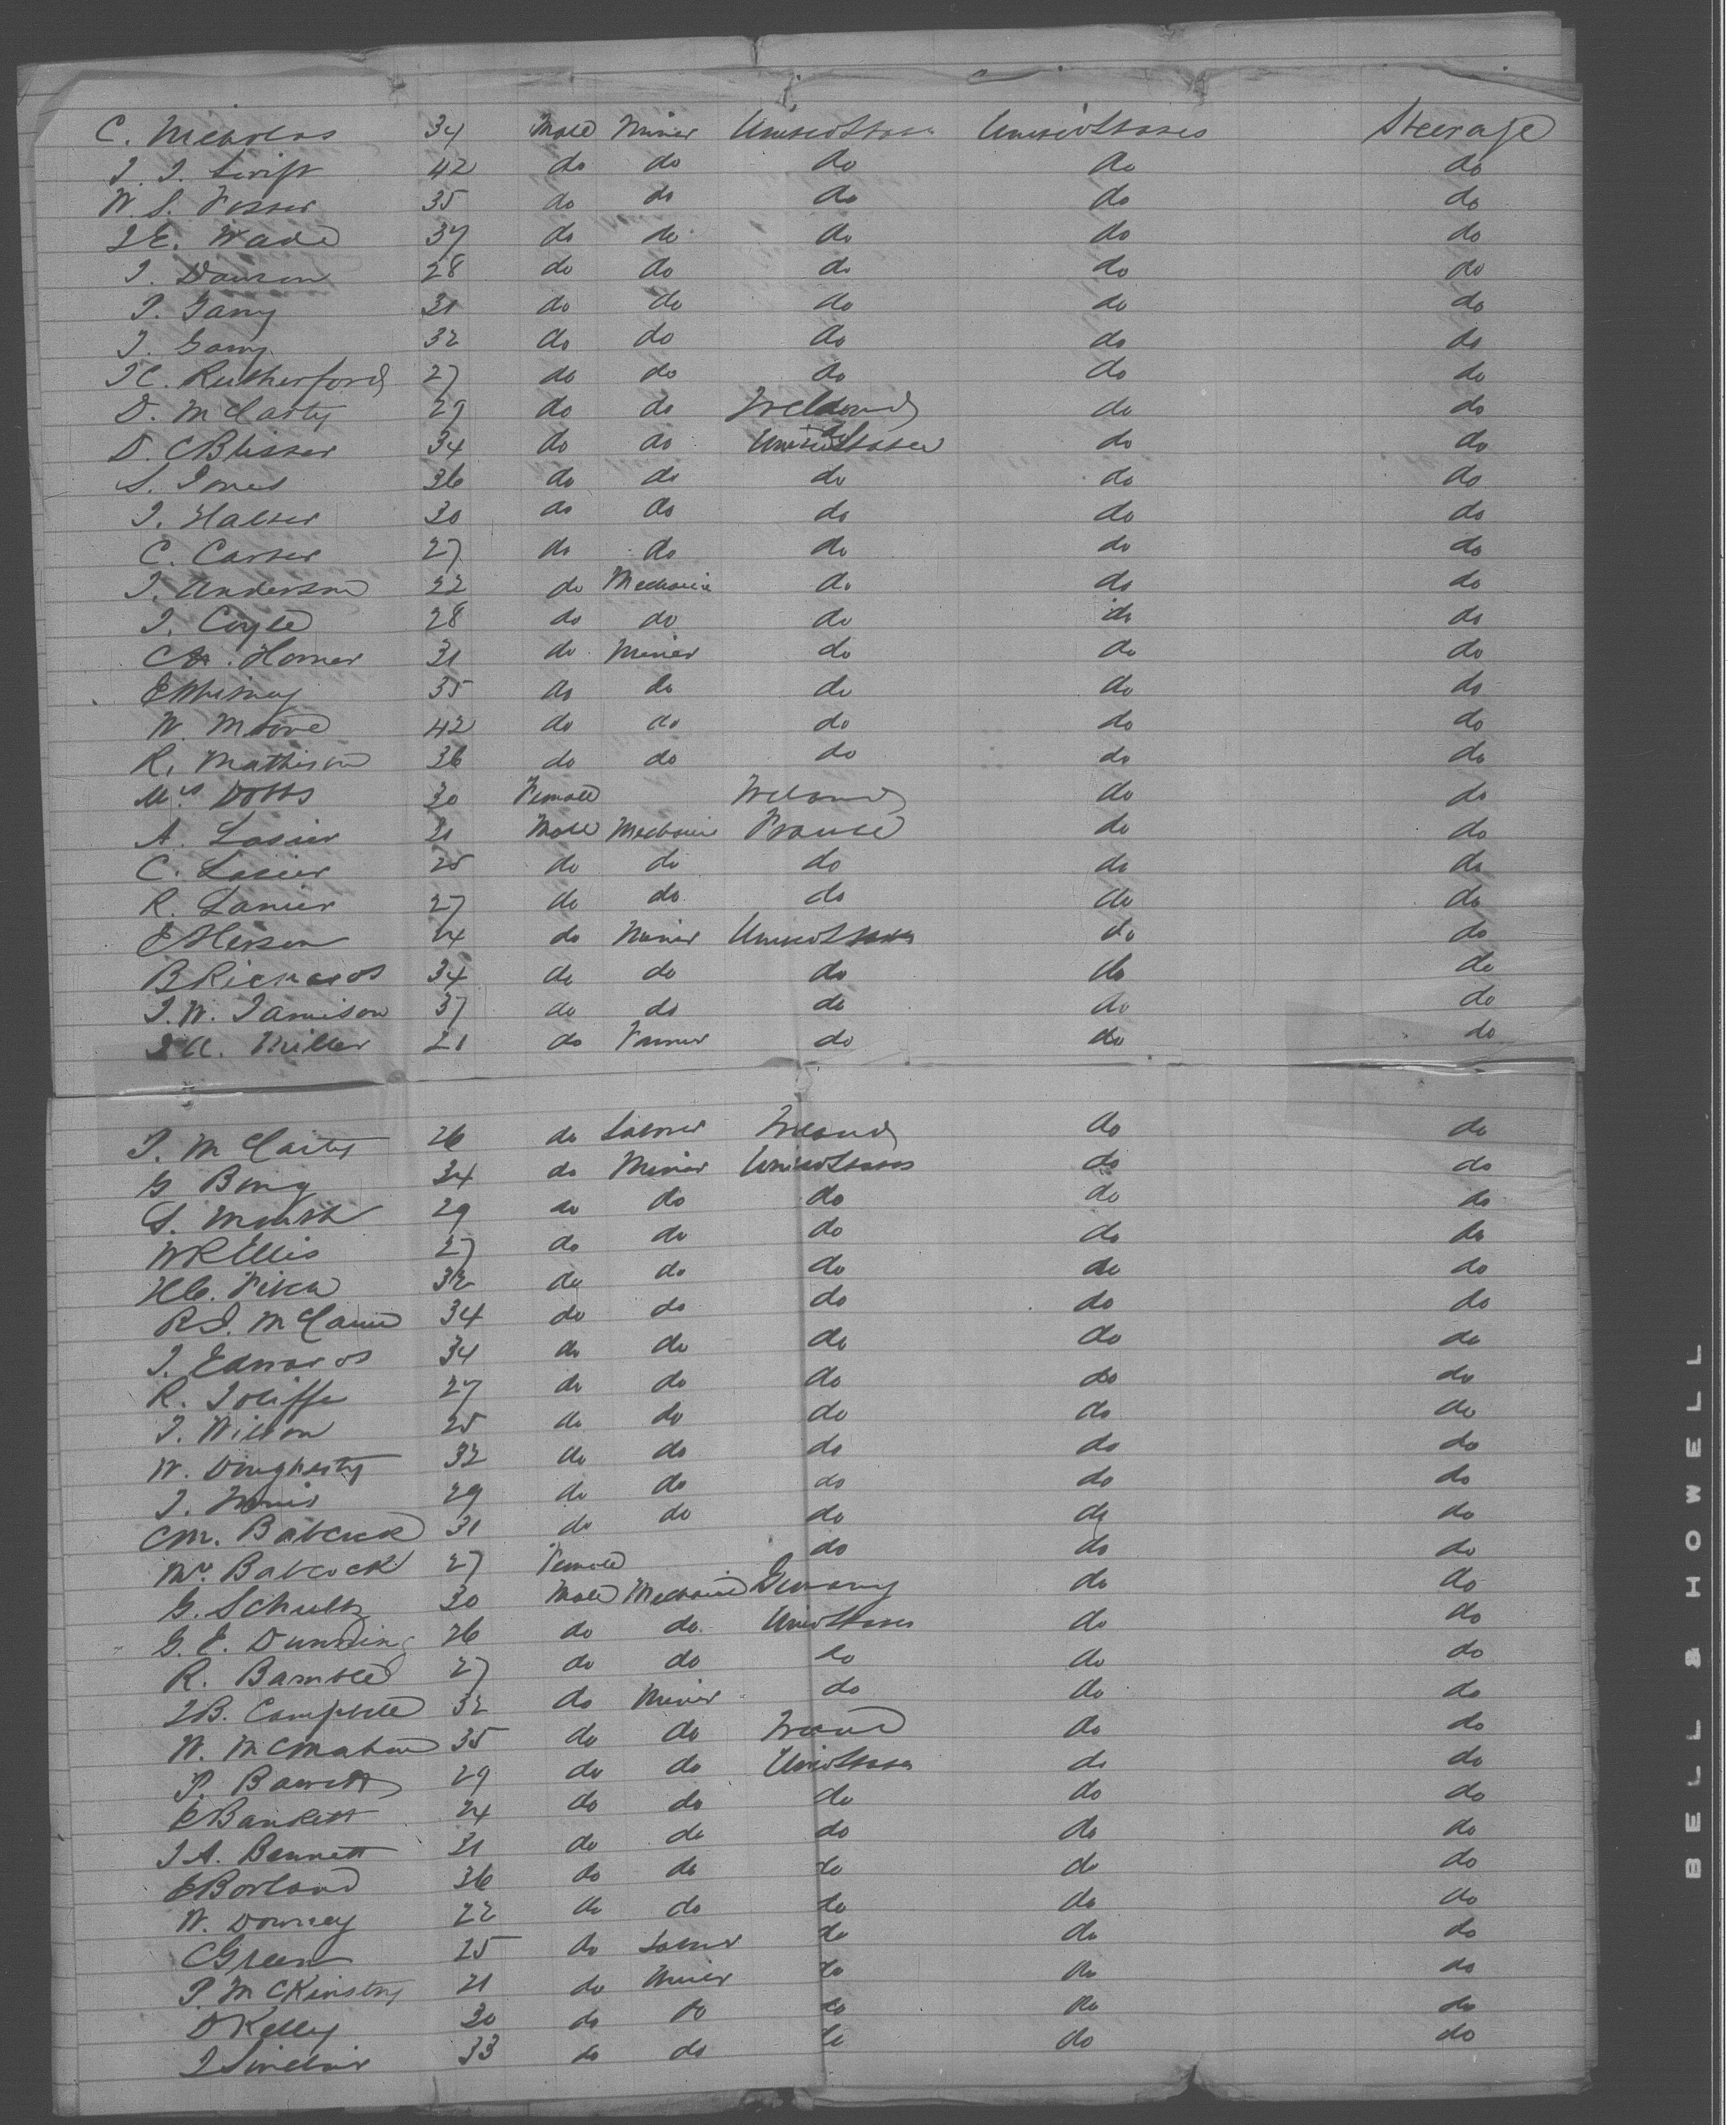 C. Nicholas 34 Male Miner United States United States Steerage
J. J. Swift 42 do do do do do
W. S. Fosser 35 do do do do do
J E. Wade 37 do do do do do
J. Dawson 28 do do do do do
J. Tarry 31 do do do do do
J. Garry 32 do do do do do
J C. Rutherford 27 do do do do do
D. McCarty 29 do do Ireland do do
D. C Blisser 34 do do United States do do
S. Jones 36 do do do do do
J. Halser 30 do do do do do
C. Carser 27 do do do do do
J. Anderson 22 do Mechanic do do do
J. Coyle 28 do do do do do
C. Homer 31 do Miner do do do
E Whitney 35 do do do do do
W. Moore 42 do do do do do
R. Mathison 36 do do do do do
Mrs Dobbs 30 Female Ireland do do
A. Lasier 21 Male Mechanic France do do
C. Lasier 25 do do do do do
R. Lanier 27 do do do do do
E Herson 24 do Miner United States do do
B Richards 34 do do do do do
J. W. Jamison 37 do do do do do
J A. Miller 21 do Farmer do do do
J. McCarty 26 do Laborer Ireland do do
G Bing 34 do Miner United States do do
S. Marsh 29 do do do do do
W R Ellis 27 do do do do do
H C. Fisca 32 do do do do do
R J. McCanne 34 do do do do do
J. Edwards 34 do do do do do
R. Joliffe 27 do do do do do
J. Wilson 25 do do do do do
W. Dougherty 32 do do do do do
J. Innis 29 do do do do do
C M. Babcock 31 do do do do do
Mrs Babcock 27 Female do do do
G. Schultz 30 Male Mechanic Germany do do
G. E. Dunning 26 do do United States do do
R. Bamble 27 do do do do do
J B. Campbell 32 do Miner do do do
W. McMahon 35 do do Ireland do do
P. Barrett 29 do do United States do do
E Bankett 24 do do do do do
J A. Bennett 31 do do do do do
E Borland 36 do do do do do
W. Downey 22 do do do do do
C Green 25 do Laborer do do do
P. McKinstry 21 do Miner do do do
D Kelley 30 do do do do do
J Sinclair 33 do do do do do
BELL & HOWELL